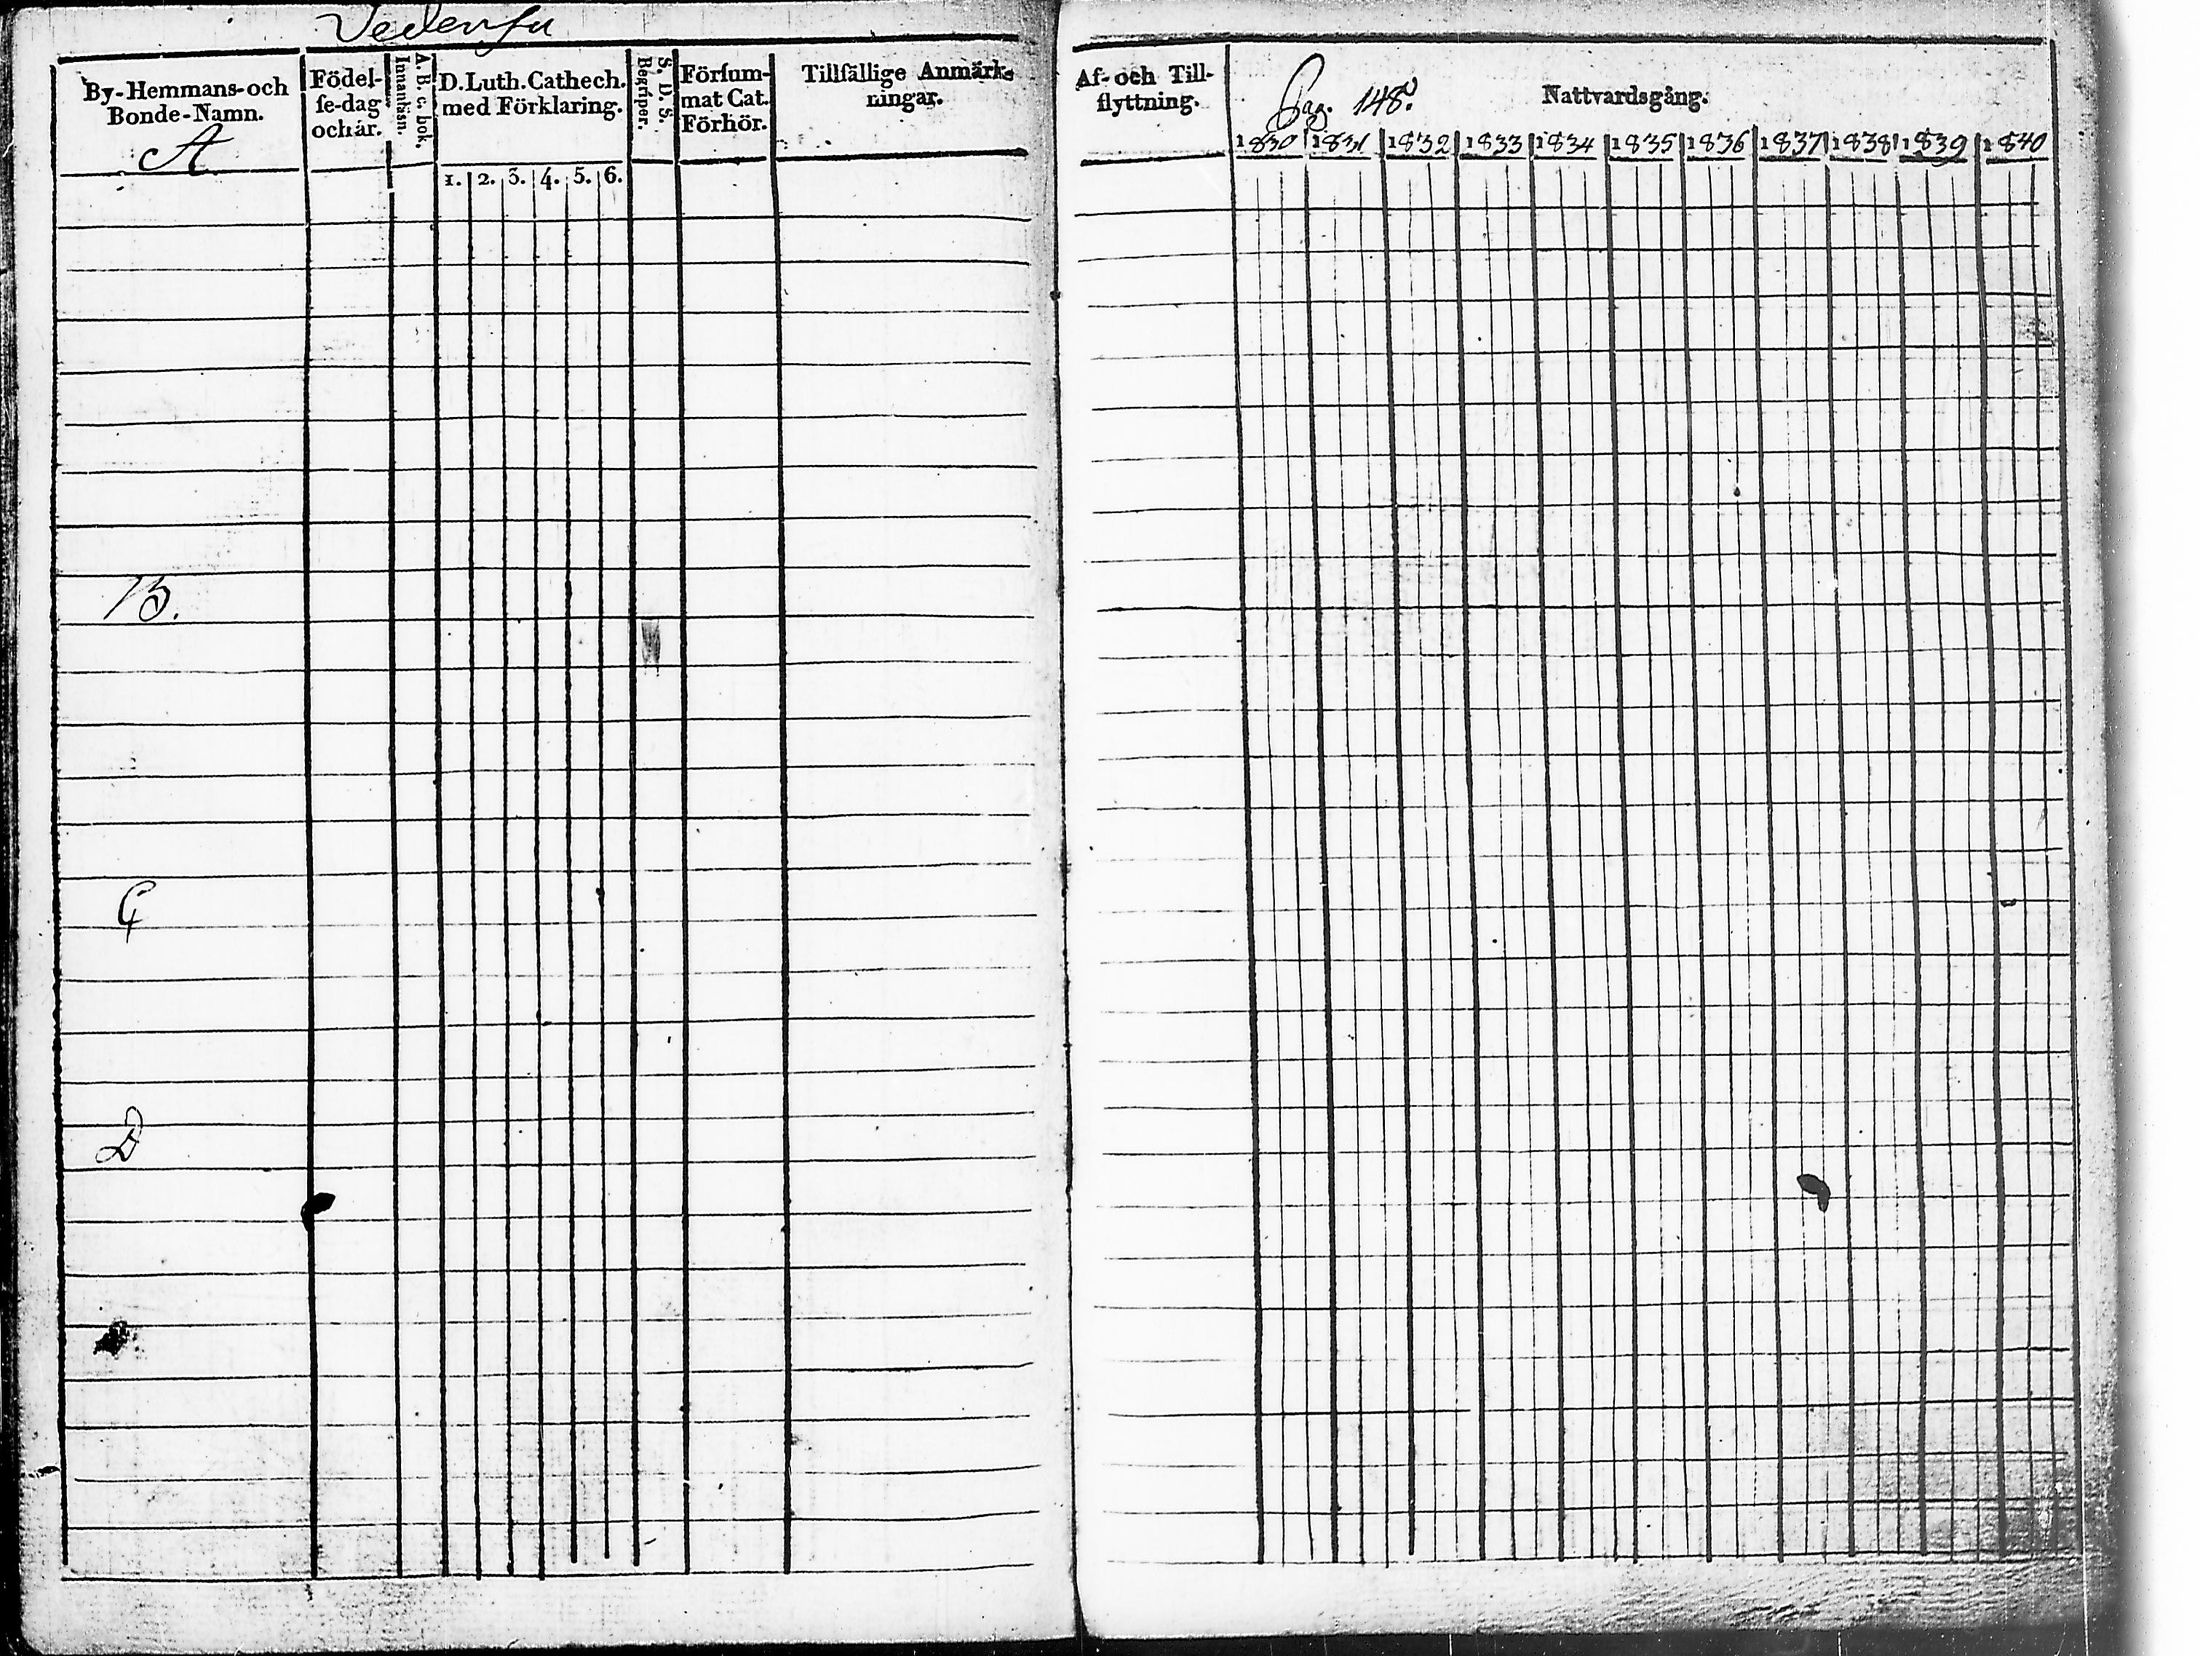 By-Hemmans-och
Bonde-Namn.
A
Födel-
ſe-dag
och år.
A. B. c. bok,
Innanläsn.
D. Luth. Cathech.
med Förklaring.
1. 2. 3. 4. 5. 6.
S. D. S.
Begriper.
Förſum-
mat Cat.
Förhör.
Tillfällige Anmärk-
ningar.
B.
C
D
Af- och Till-
flyttning.
Pag. 148.
Nattvardsgång.
1830 1831 1832 1833 1834 1835 1836 1837 1838 1839 1840